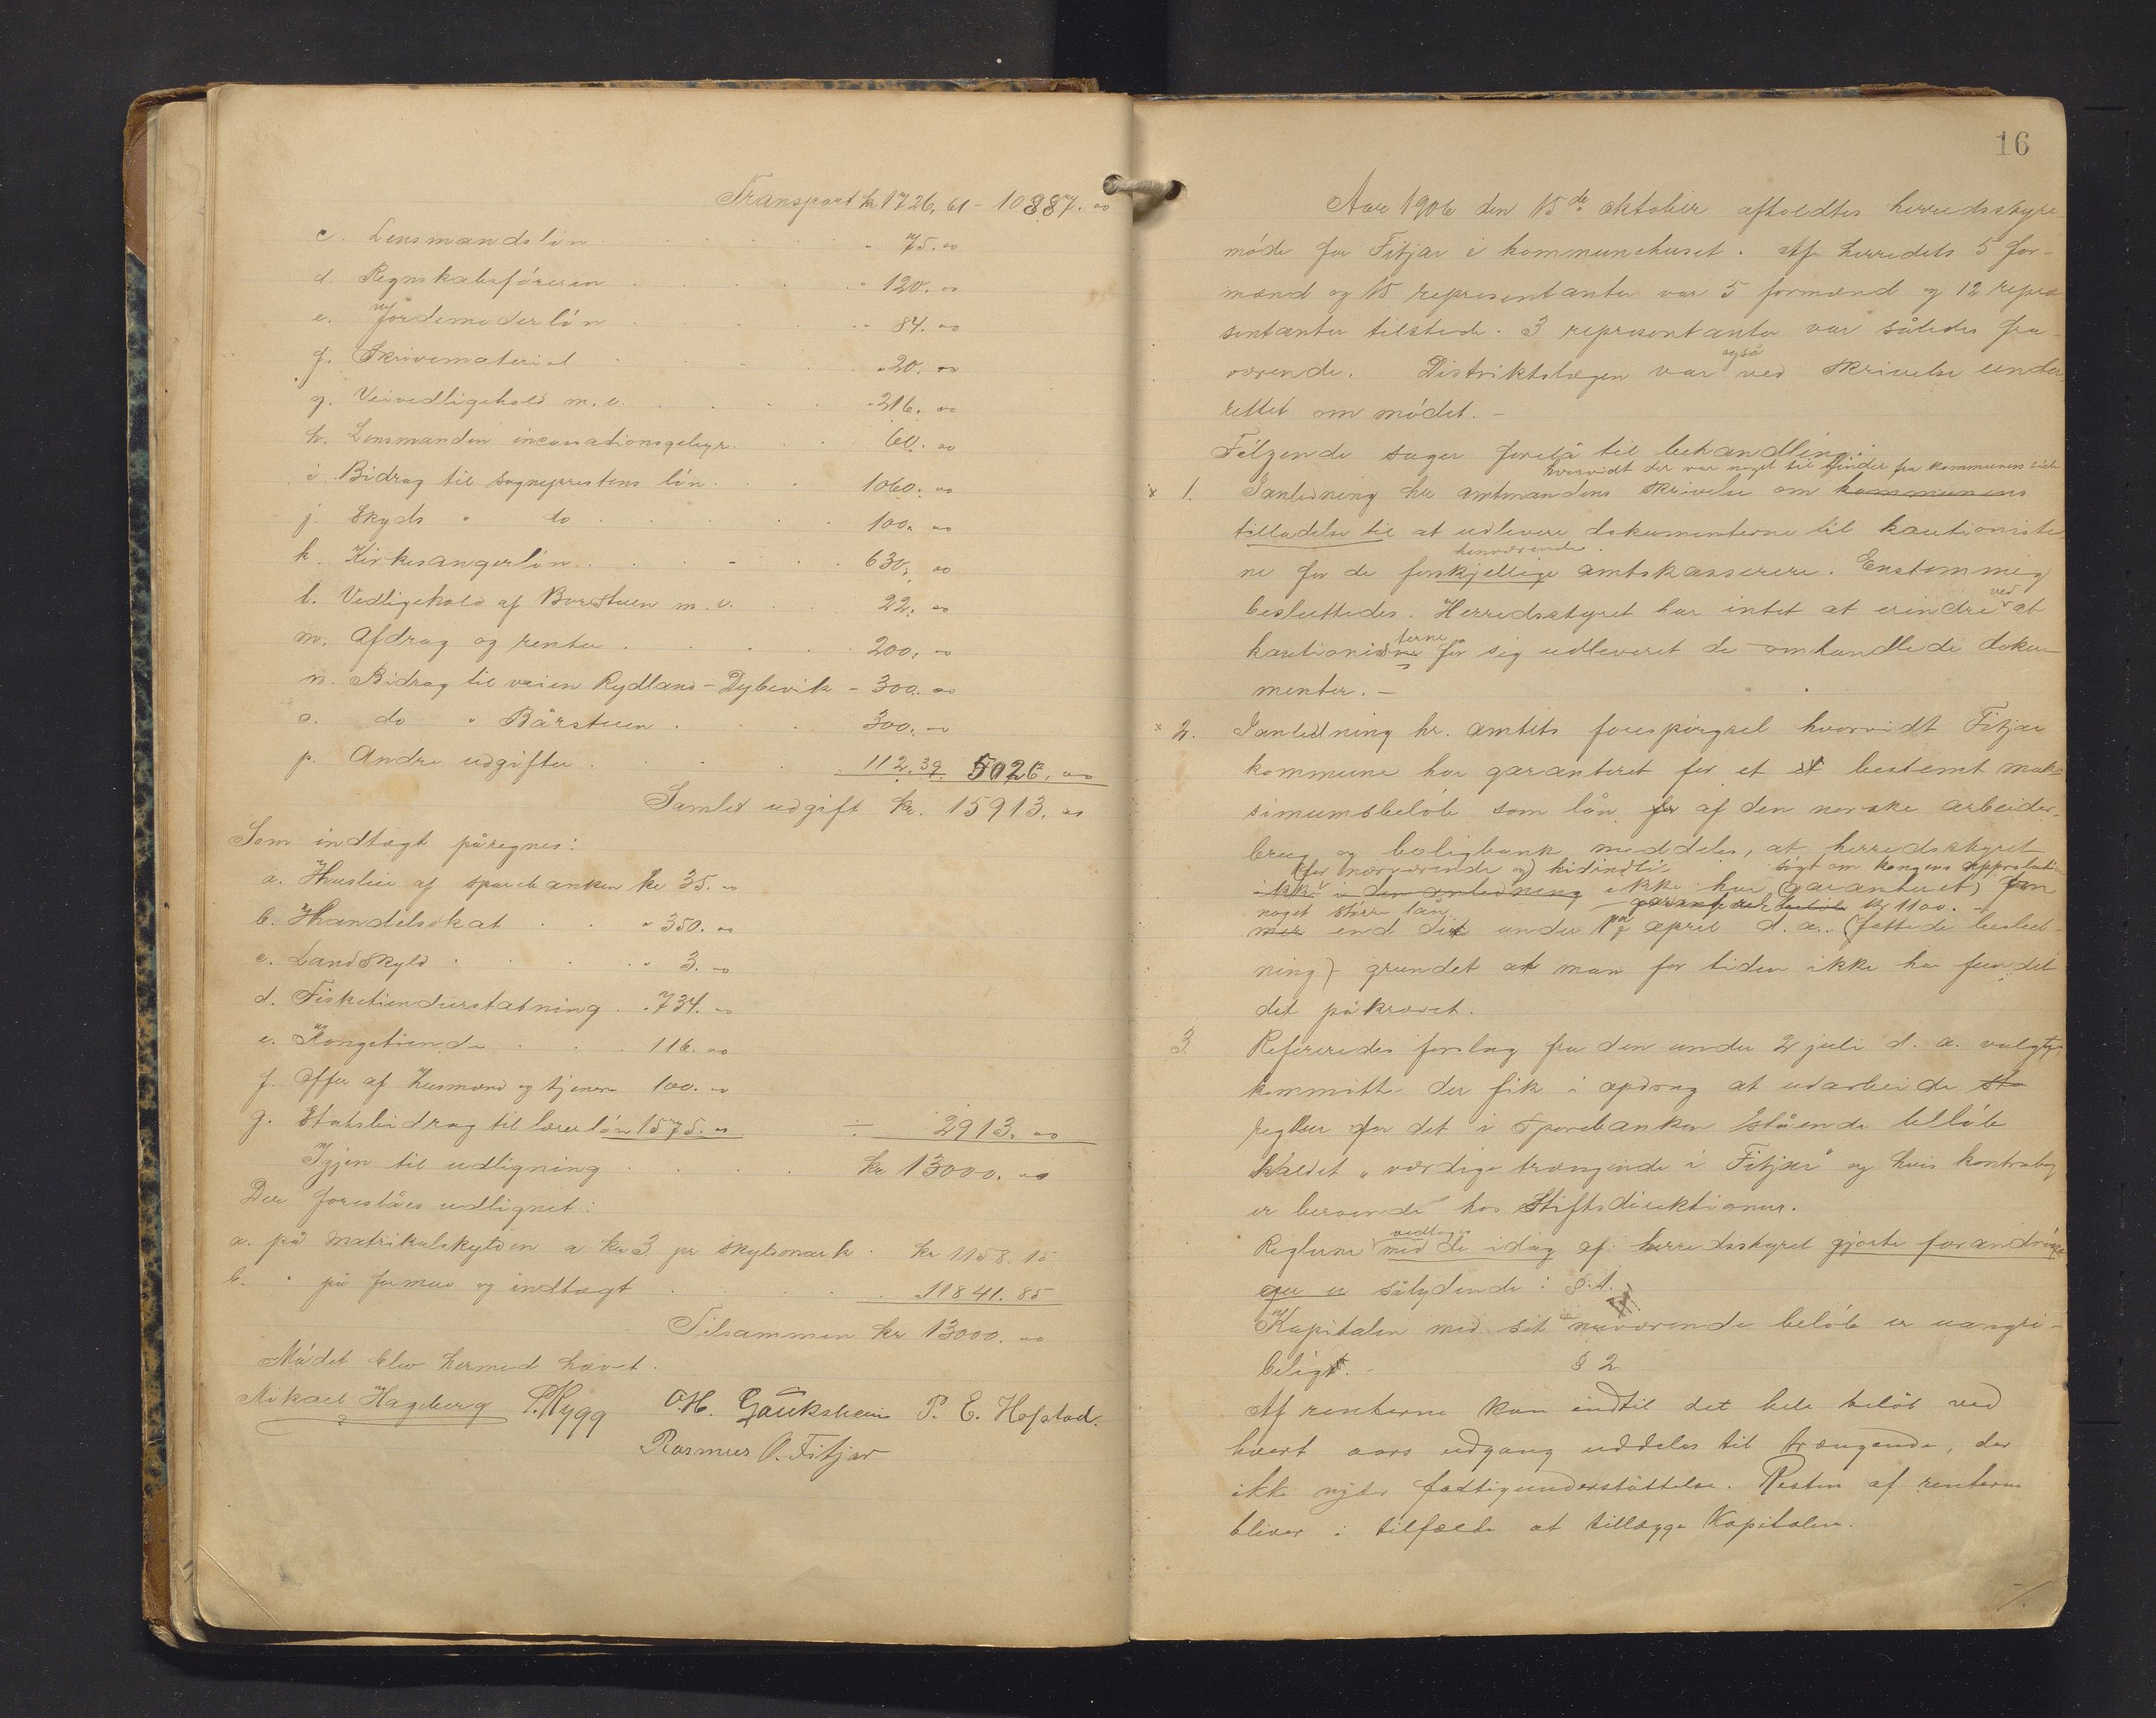 Transport kr 1726,61 - 10887.00
c. Lensmandsløn - 75.00
d. Regnskabsføreren " 120.00
e. Jordemoderløn " 84.00
f. Skrivematerial " 20.00
g. Veivedligehold m.v. - 216.00
h. Lensmanden incassationsgebyr. 60.00
i. Bidrag til sogneprestens løn 1060.00
j. Skyds " do 100.00
k. Kirkesangerløn 630,00
l. Vedligehold af Borestuen m.v. 22.00
m. Afdrag og renter 200,00
n. Bidrag til veien Rydland - Dybevik - 300.00
o. do " Bårstuen 300.00
p. Andre udgifter 112.39 5026.00
Samlet udgift kr. 15913.00
Som indtægt påregnes:
a. Husleie af sparebanken kr 35.00
b. Handelsskat " 350.00
c. Landskyld " 3.00
d. Fisketiendeerstatning " 734.00
e. Kongetiende 116.00
f. Offer af husmænd og tjenere 100.00
g. Statsbidrag til lærerløn 1575.00 ÷ 2913.00
Igjen til udligning kr 13000.00
Der foreslåes udlignet:
a. på matrikulskylden a kr 3 pr skyldmark kr 1158.15
b. " på formue og indtægt " 11841.85
Tilsammen kr 13000.00
Mødet blev hermed hævet.
Mikael Hageberg P. Rygg O.H. Gåuksheim P. E. Hofstad.
Rasmus O. Fitjar
16
Aar 1906 den 15de oktober afholdtes herredsstyre-
møde for Fitjar i kommunehuset. Af herredets 5 for-
mænd og 15 representanter var 5 formænd og 12 repre-
sentanter tilstede. 3 representanter var således fra-
også
værende. Distriktslægen var ved skrivelse under-
rettet om mødet. -
Følgende sager forelå til behandling:
hvorvidt der var noget til hinder fra kommunens side
x 1. I anledning hr amtmandens skrivelse om kommunens
tilladelse til at udlevere dokumenterne til kautioniste-
henværende
ne for de forskjellige amtskasserere. Enstemmig
ved
besluttedes. Herredsstyret har intet at erindre at
terne
kautionisne får sig udleveret de omhandlede doku-
menter. -
x 2. I anledning hr. amtets forespørgsel hvorvidt Fitjar
kommune har garanteret for et et bestemt mak-
simumsbeløb som lån for af den norske arbeider-
brug og boligbank meddeles, at herredsstyret
(for nærværende og) hidindtil søgt om kongens approbation
ikke i den anledning ikke har (garanteret) for
noget større lån garanteret beløb kr 1100. -
mer end det under 1ste april d.a. (fattede beslut-
ning) - grundet at man for tiden ikke har fundet
det påkrævet.
3 Refereredes forslag fra den under 2 juli d.a. valgte
kommitte der fik i opdrag at udarbeide sta
regler for det i Sparebanken stående beløb
kaldet "værdige trængende i Fitjar" og hvis kontrabog
er beroende hos Stiftsdirektionen.
vedtagne
Reglerne med de idag af herredsstyret gjorte forandrin-
ger er sålydende: §.1.
Kapitalen med sit nuværende beløb er uangri-
beligt. § 2
Af renterne kan indtil det hele beløb ved
hvert aars udgang uddeles til trængende, der
ikke nyder fattigunderstøttelse. Resten af renterne
bliver i tilfælde at tillægge Kapitalen.